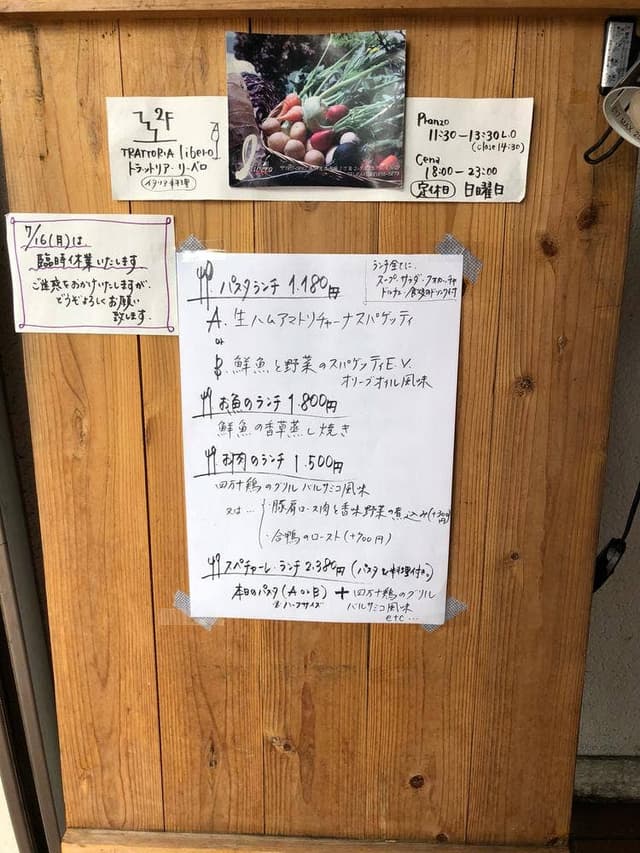 2F
TRATTORIA libero
トラットリア・リーベロ
イタリア料理
libero
Pranzo
11:30－13:30 L.O
(close 14:30)
Cena
18:00－23:00
定休日 日曜日
7/16(月)は
臨時休業いたします
ご迷惑をおかけいたしますが、
どうぞよろしくお願い
致します。
ランチ全てに、
スープ・サラダ・フォカッチャ
ドルチェ/食後のドリンク付
パスタランチ 1.180円
A. 生ハムアマトリチャーナスパゲッティ
or
B. 鮮魚と野菜のスパゲッティE.V.
オリーブオイル風味
お魚のランチ 1.800円
鮮魚の香草蒸し焼き
お肉のランチ 1.500円
四万十鶏のグリル バルサミコ風味
又は…
・豚肩ロース肉と香味野菜の煮込み(+300円)
・合鴨のロースト(+700円)
スペチャーレ・ランチ 2.380円 (パスタも料理付き。)
本日のパスタ(A or B) + 四万十鶏のグリル
ハーフサイズ
バルサミコ風味
etc…